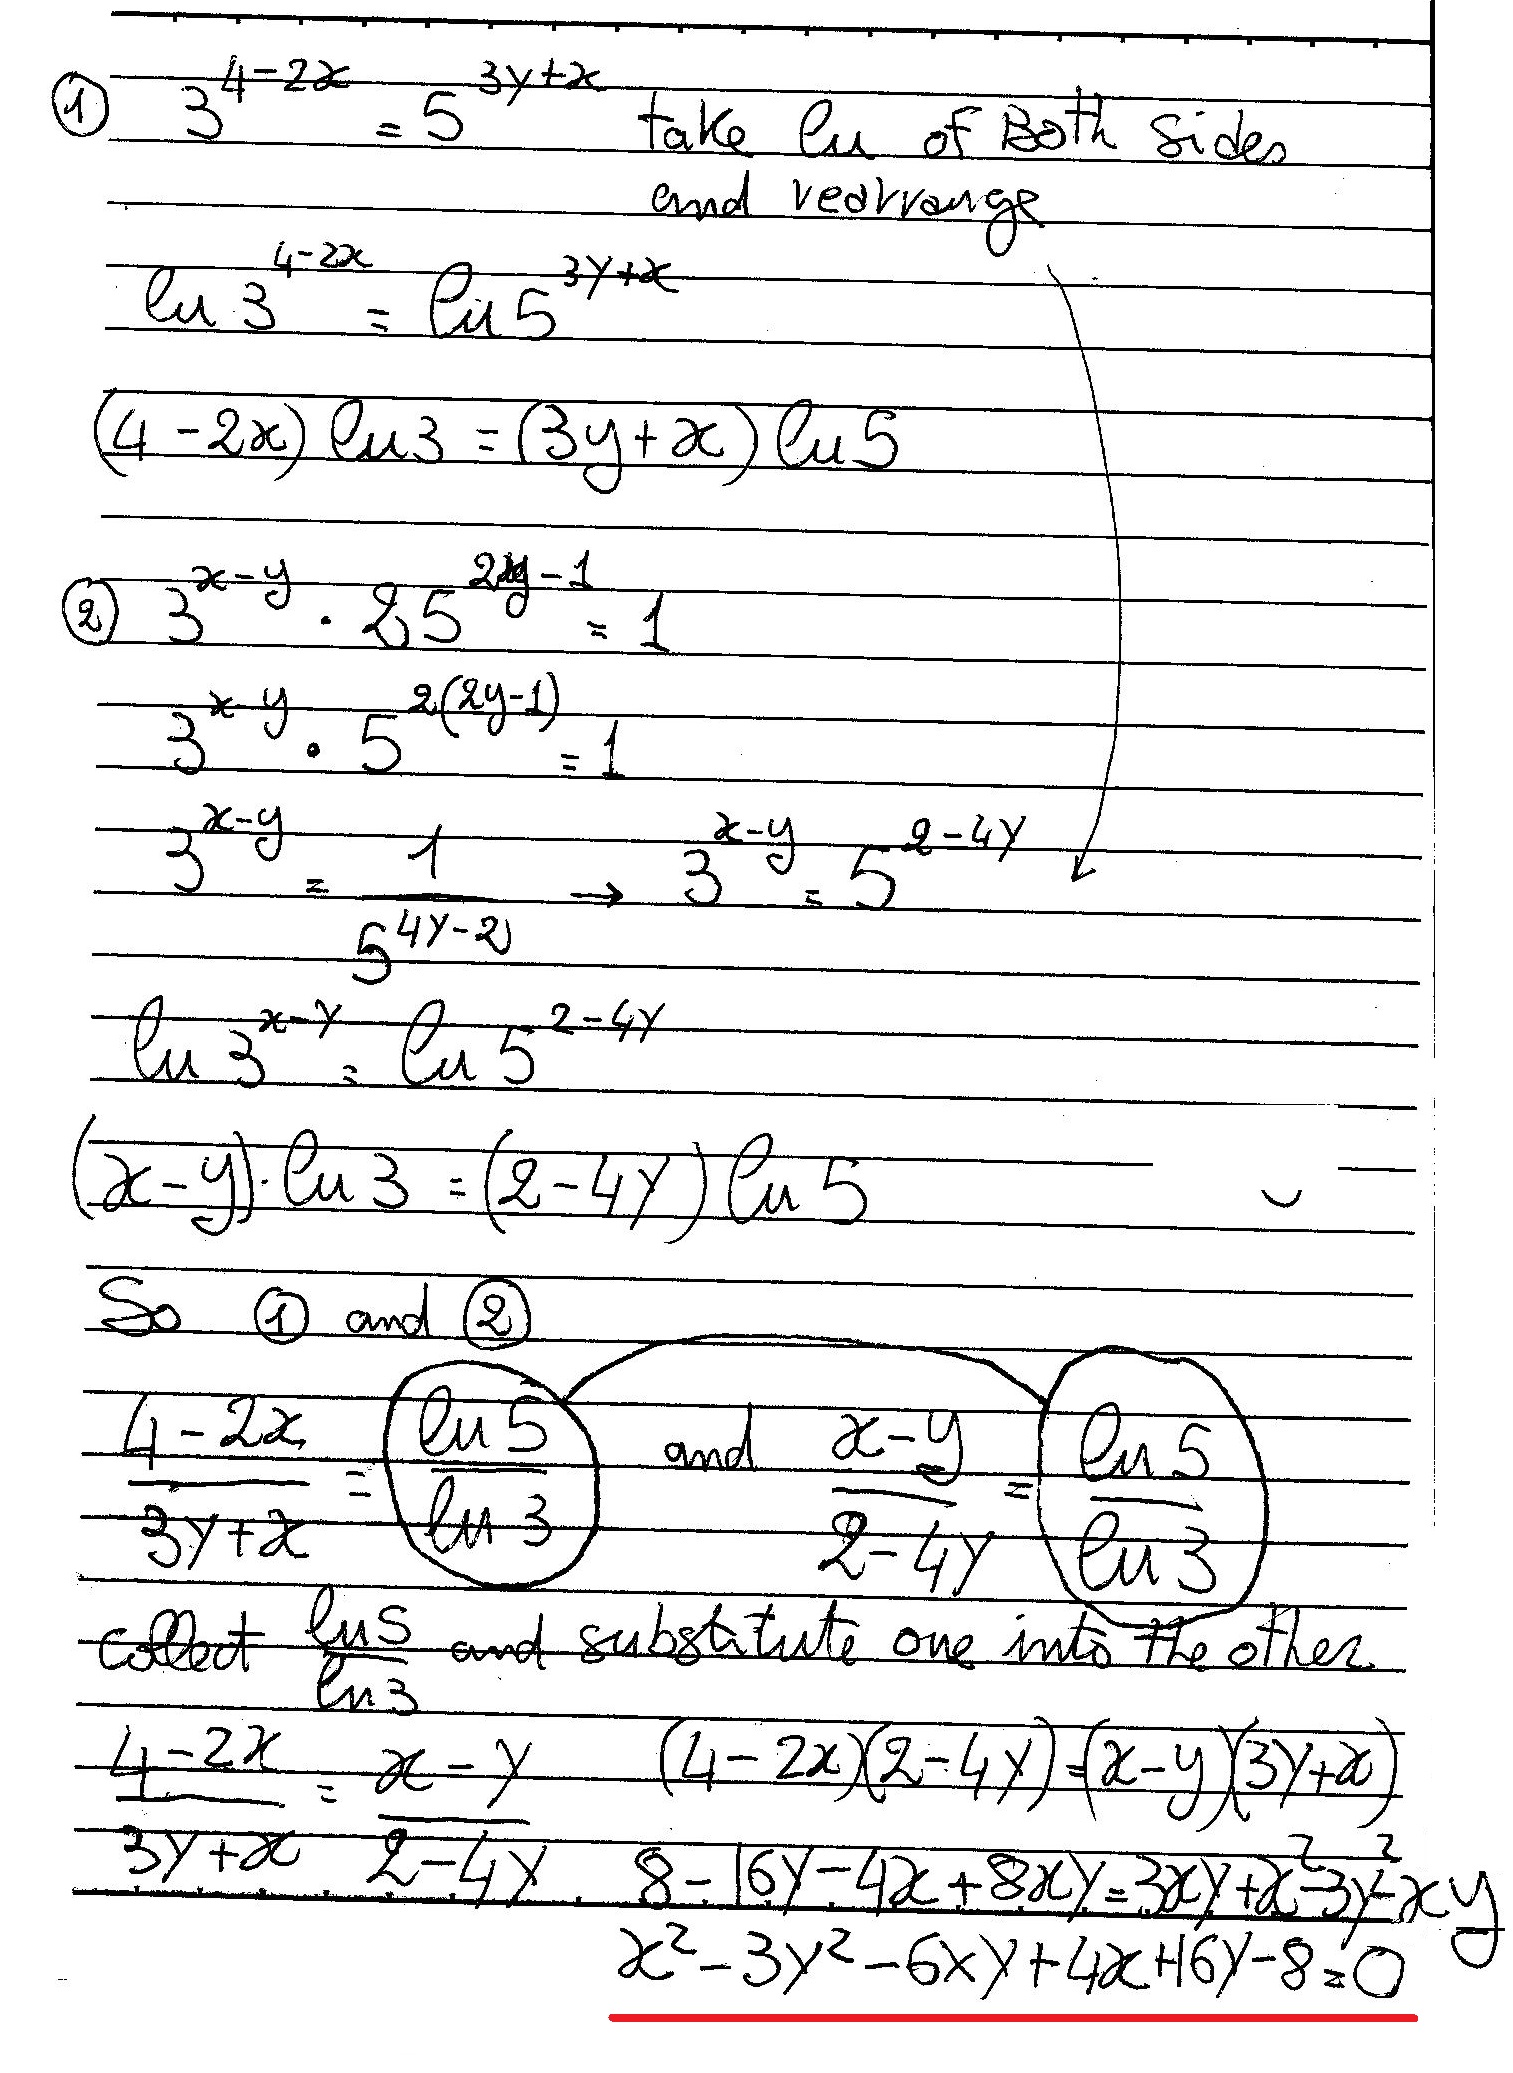 ① 3^(4-2x) = 5^(3y+x) take ln of Both sides
and rearrange
ln 3^(4-2x) = ln 5^(3y+x)
(4-2x) ln3 = (3y+x) ln5
② 3^(x-y) · 25^(2y-1) = 1
3^(x-y) · 5^(2(2y-1)) = 1
3^(x-y) = 1/5^(4y-2) → 3^(x-y) = 5^(2-4y)
ln 3^(x-y) = ln 5^(2-4y)
(x-y)·ln 3 = (2-4y) ln 5
So ① and ②
(4-2x)/(3y+x) = ln5/ln3 and (x-y)/(2-4y) = ln5/ln3
collect ln5/ln3 and substitute one into the other
(4-2x)/(3y+x) = (x-y)/(2-4y) (4-2x)(2-4y) = (x-y)(3y+x)
8-16y-4x+8xy = 3xy+x²-3y²-xy
x²-3y²-6xy+4x+16y-8=0